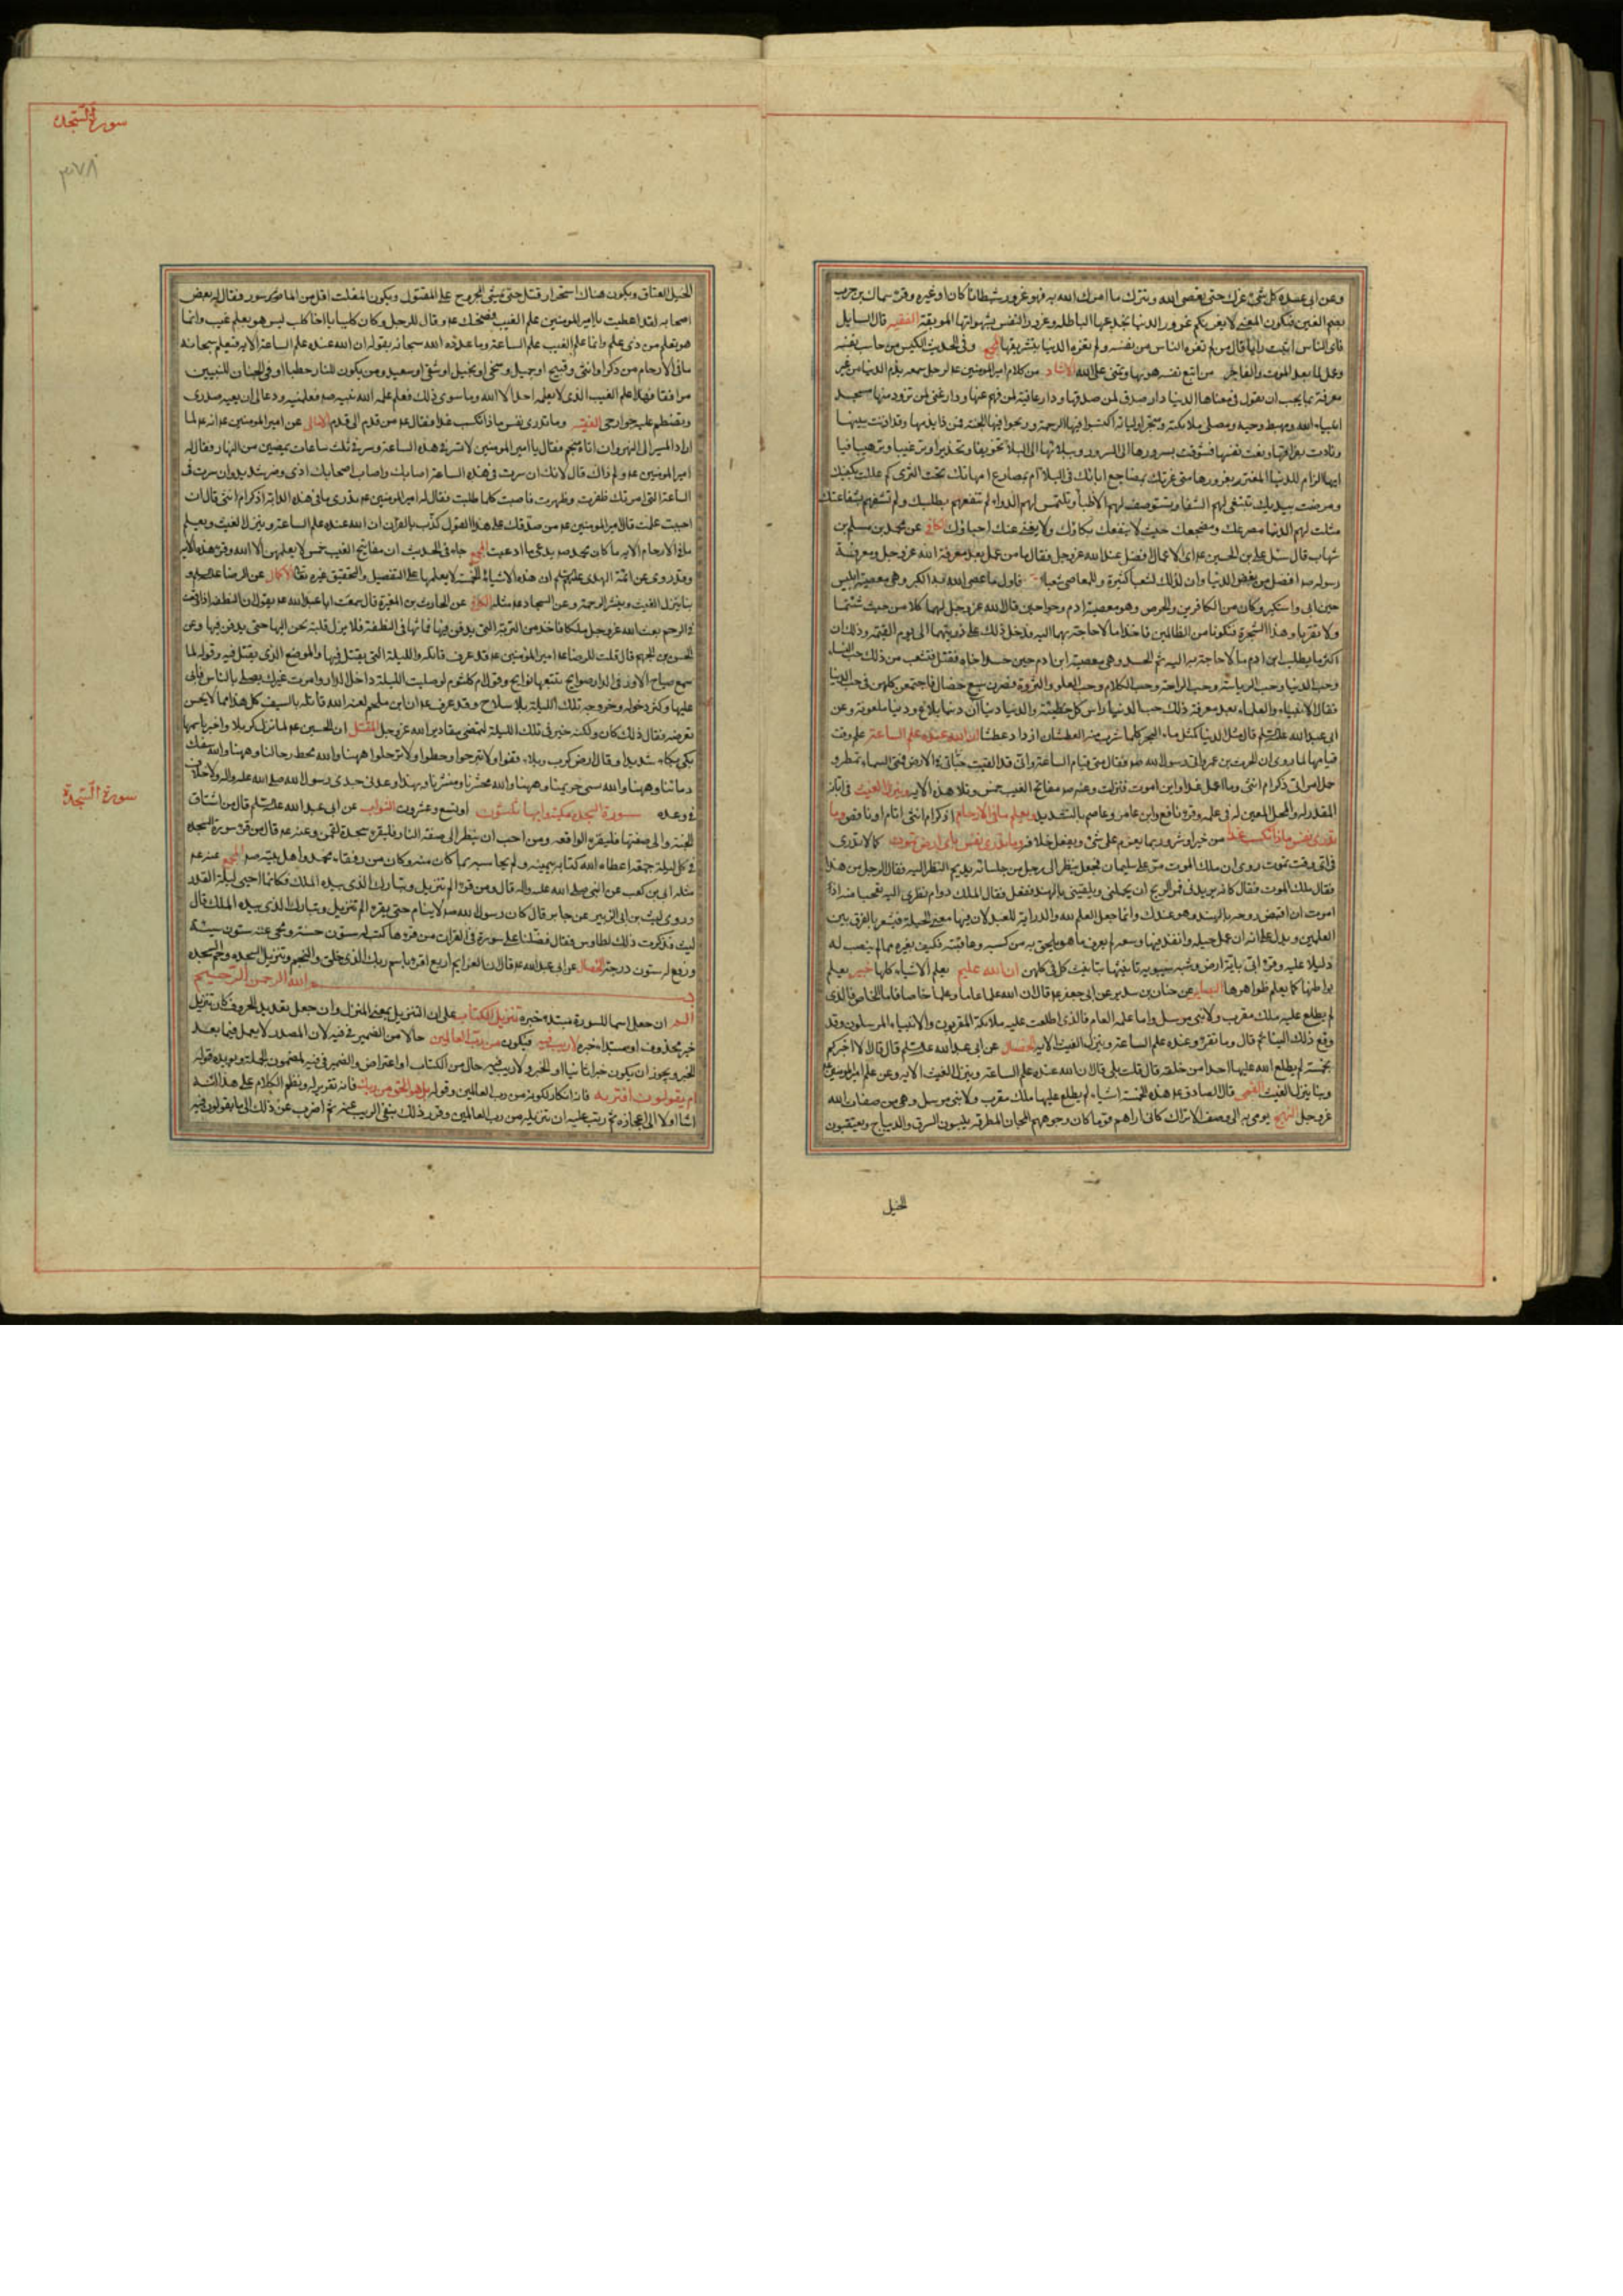 وعن ابى عبيدة كل شئ غرك حتى تعصى الله وتترك ما امرك الله به فهو غرور شيطانا كان او غيره وقرء سماك بن حرب
بضم الغين فيكون المعنى لا يغرنكم غرور الدنيا بخدعها الباطلة وغرور النفس بشهواتها الموبقة الفقيه قال السايل
فاى الناس اثبت رأيا قال من لم تغره الناس من نفسه ولم تغره الدنيا بتشويقها المجمع وفى الحديث الكيس من حاسب نفسه
وعمل لما بعد الموت والفاجر من اتبع نفسه هويها وتمنى على الله الارشاد من كلام امير المؤمنين عم لرجل سمعه يذم الدنيا من غير
معرفة بما يجب ان يقول فى معناها الدنيا دار صدق لمن صدقها ودار عافية لمن فهم عنها ودار غنى لمن تزود منها مسجد
انبياء الله ومهبط وحيه ومصلى ملائكته ومتجر اوليائه اكتسبوا فيها الرحمة وربحوا فيها الجنة فمن ذا يذمها وقد اذنت ببينها
ونادت بفراقها ونعت نفسها فشوقت بسرورها الى السرور وببلائها الى البلاء تخويفا وتحذيرا وترغيبا وترهيبا فيا
ايها الذام للدنيا المغتر بغرورها متى غرتك بمصارع ابائك فى البلاء ام بمضاجع امهاتك تحت الثرى كم عللت بكفيك
ومرضت بيديك تبتغى لهم الشفاء وتستوصف لهم الاطباء وتلتمس لهم الدواء لم تنفعهم بطلبك ولم تشفهم بشفاعتك
مثلت لهم الدنيا مصرعك ومضجعك حيث لا ينفعك بكاؤك ولا يغنى عنك احباؤك الكافى عن محمد بن مسلم بن
شهاب قال سئل على بن الحسين عم اى الاعمال افضل عند الله عز وجل فقال ما من عمل بعد معرفة الله عز وجل ومعرفة
رسوله صم افضل من بغض الدنيا وان لذلك لشعبا كثيرة وللمعاصى شعبا فاول ما عصى الله به الكبر وهى معصية ابليس
حين ابى واستكبر وكان من الكافرين والحرص وهو معصية ادم وحوا حين قال الله عز وجل لهما كلا من حيث شئتما
ولا تقربا هذه الشجرة فتكونا من الظالمين فاخذا ما لا حاجة بهما اليه فدخل ذلك على ذريتهما الى يوم القيمة وذلك ان
اكثر ما يطلب ابن ادم ما لا حاجة به اليه ثم الحسد وهى معصية ابن ادم حين حسد اخاه فقتله فتشعب من ذلك حب النساء
وحب الدنيا وحب الرياسة وحب الراحة وحب الكلام وحب العلو والثروة فصرن سبع خصال فاجتمعن كلهن فى حب الدنيا
فقال الانبياء والعلماء بعد معرفة ذلك حب الدنيا راس كل خطيئة والدنيا دنياآن دنيا بلاغ ودنيا ملعونة وعن
ابى عبد الله عليه السلم قال مثل الدنيا كمثل ماء البحر كلما شرب منه العطشان ازداد عطشا ان الله عنده علم الساعة علم وقت
قيامها لما روى ان الحرث بن عمرو اتى رسول الله صم فقال متى قيام الساعة وانى قد القيت حباتى فى الارض فمتى السماء تمطر و
حمل امرأتى ذكر ام انثى وما اعمل غدا واين اموت فنزلت وعنه صم مفاتح الغيب خمس وتلا هذه الاية وينزل الغيث فى ابانه
المقدر له والمحل المعين له فى علمه وقرء نافع وابن عامر وعاصم بالتشديد ويعلم ما فى الارحام اذكر ام انثى اتام او ناقص وما
تدرى نفس ماذا تكسب غدا من خير او شر وربما يعزم على شئ ويفعل خلافه وما تدرى نفس باى ارض تموت كما لا تدرى
فى اى وقت تموت روى ان ملك الموت مر على سليمان فجعل ينظر الى رجل من جلسائه يديم النظر اليه فقال الرجل من هذا
فقال ملك الموت فقال كانه يريدنى فمر الريح ان يحملنى ويلقينى بالهند ففعل فقال الملك دوام نظرى اليه تعجبا منه اذ
امرت ان اقبض روحه بالهند وهو عندك وانما جعل العلم لله والدراية للعبد لان فيها معنى الحيلة فيشعر بالفرق بين
العلمين ويدل على انه ان عمل حيلة وانفذ فيها وسعه لم يعرف ما هو الحق به من كسبه وعاقبته فكيف بغيره مما لم ينصب له
دليلا عليه وقرئ باية ارض وشبه سيبويه تانيثها بتانيث كل فى كلهن ان الله عليم يعلم الاشياء كلها خبير يعلم
بواطنها كما يعلم ظواهرها البصاير عن حنان بن سدير عن ابى جعفر عم قال ان لله علما عاما وعلما خاصا فاما الخاص فالذى
لم يطلع عليه ملك مقرب ولا نبى مرسل واما علمه العام فالذى اطلعت عليه ملائكة المقربون والانبياء المرسلون وقد
وقع ذلك الينا ثم قال وما تقرؤ وعنده علم الساعة وينزل الغيث الاية الخصال عن ابى عبد الله عليه السلم قال قال الا اخبركم
بخمسة لم يطلع الله عليها احدا من خلقه قال قلت بلى قال ان الله عنده علم الساعة وينزل الغيث الاية وعن علم امير المؤمنين
وبنا ينزل الغيث القمى قال الصادق عم هذه الخمسة اشياء لم يطلع عليها ملك مقرب ولا نبى مرسل وهى من صفات الله
عز وجل النهج يومى به الى وصف الاتراك كانى اراهم قوما كان وجوههم المجان المطرقة يلبسون السرق والديباج ويعتقبون
الخيل
سورة السجدة
٣٧٨
الخيل العتاق ويكون هناك استحرار قتل حتى يمشى المجروح على المقتول ويكون المفلت اقل من الماسور فقال له بعض
اصحابه لقد اعطيت يا امير المؤمنين علم الغيب فضحك عم وقال للرجل وكان كلبيا يا اخا كلب ليس هو بعلم غيب وانما
هو تعلم من ذى علم وانما علم الغيب علم الساعة وما عدده الله سبحانه بقوله ان الله عنده علم الساعة الاية فيعلم سبحانه
ما فى الارحام من ذكر او انثى وقبيح او جميل وسخى او بخيل او شقى او سعيد ومن يكون للنار حطبا او فى الجنان للنبيين
مرافقا فهذا علم الغيب الذى لا يعلمه احد الا الله وما سوى ذلك فعلم علمه الله نبيه صم فعلمنيه ودعا لى ان يعيه صدرى
وتضطم عليه جوارحى الفقيه وما تدرى نفس ماذا تكسب غدا فقال عم من قدم الى قدم الامالى عن امير المؤمنين عم انه عم لما
اراد المسير الى النهروان اتاه منجم فقال يا امير المؤمنين لا تسر فى هذه الساعة وسر فى ثلث ساعات يمضين من النهار فقال له
امير المؤمنين عم ولم ذاك قال لانك ان سرت فى هذه الساعة اصابك واصاب اصحابك اذى وضر شديد وان سرت فى
الساعة التى امرتك ظفرت وظهرت واصبت كلما طلبت فقال له امير المؤمنين عم تدرى ما فى هذه الدابة اذكر ام انثى قال ان
احببت علمت قال امير المؤمنين عم من صدقك على هذا القول كذب بالقران ان الله عنده علم الساعة وينزل الغيث ويعلم
ما فى الارحام الاية ما كان محمد صم يدعى ما ادعيت المجمع جاء فى الحديث ان مفاتيح الغيب خمس لا يعلمهن الا الله وقرء هذه الاية
وقد روى عن ائمة الهدى عليهم السلم ان هذه الاشياء الخمسة لا يعلمها على التفصيل والتحقيق غيره تعالى الاكمال عن الرضا عليه السلم و
بنا ينزل الغيث وينشر الرحمة وعن السجاد عم مثله الكافى عن الحارث بن المغيرة قال سمعت ابا عبد الله عم يقول ان النطفة اذا وقعت
فى الرحم بعث الله عز وجل ملكا فاخذ من التربة التى يدفن فيها فماثها فى النطفة فلا يزل قلبه يحن اليها حتى يدفن فيها وعن
الحسن بن الجهم قال قلت للرضا عم امير المؤمنين عم قد عرف قاتله والليلة التى يقتل فيها والموضع الذى يقتل فيه وقوله لما
سمع صياح الاوز فى الدار صوايح تتبعها نوايح وقول ام كلثوم لو صليت الليلة داخل الدار وامرت غيرك يصلى بالناس فابى
عليها وكثر دخوله وخروجه تلك الليلة بلا سلاح وقد عرف عم ان ابن ملجم لعنه الله قاتله بالسيف كل هذا مما لا يحسن
تعرضه فقال ذلك كان ولكنه خير فى تلك الليلة لتمضى مقادير الله عز وجل المقتل ان الحسين عم لما نزل كربلا واخبر باسمها
بكى بكاء شديدا وقال ارض كرب وبلاء قفوا ولا تبرحوا وحطوا ولا ترحلوا ههنا والله محط رحالنا وههنا والله سفك
دمائنا وههنا والله سبى حريمنا وههنا والله محشرنا ومنشرنا وبهذا وعدنى جدى رسول الله صلى الله عليه واله ولا خلاف
فى وعده سورة السجدة مكية وايها ثلثون او تسع وعشرون الثواب عن ابى عبد الله عليه السلم قال من اشتاق
الى الجنة والى صفتها فليقرء الواقعة ومن احب ان ينظر الى صفة النار فليقرء سجدة لقمن وعنه عم قال من قرء سورة السجدة
فى كل ليلة جمعة اعطاه الله كتابه بيمينه ولم يحاسبه بما كان منه وكان من رفقاء محمد واهل بيته صم المجمع عنه عم
مثله ابى بن كعب عن النبى صلى الله عليه واله قال ومن قرء الم تنزيل وتبارك الذى بيده الملك فكانما احيى ليلة القدر
وروى ليث بن ابى الزبير عن جابر قال كان رسول الله صم لا ينام حتى يقرء الم تنزيل وتبارك الذى بيده الملك قال
ليث فذكرت ذلك لطاوس فقال فضلتا على سورة فى القران من قرءها كتب له ستون حسنة ومحى عنه ستون سيئة
ورفع له ستون درجة الخصال عن ابى عبد الله عم قال ان العزايم اربع اقرء باسم ربك الذى خلق والنجم وتنزيل السجدة وحم السجدة
بسم الله الرحمن الرحيم
الم ان جعل اسما للسورة مبتدء خبره تنزيل الكتاب على ان التنزيل بمعنى المنزل وان جعل تعديد الحروف كان تنزيل
خبر محذوف او مبتداء خبره لا ريب فيه فيكون من رب العالمين حالا من الضمير فى فيه لان المصدر لا يعمل فيما بعد
الخبر ويجوز ان يكون خبرا ثانيا او الخبر ولا ريب فيه حال من الكتاب او اعتراض والضمير فى فيه لمضمون الجملة ويؤيده قوله
ام يقولون افتريه فانه انكار لكونه من رب العالمين وقوله بل هو الحق من ربك فانه تقرير له ونظم الكلام على هذا انه
اشار اولا الى اعجازه ثم رتب عليه ان تنزيله من رب العالمين وقرر ذلك بنفى الريب عنه ثم اضرب عن ذلك الى ما يقولون فيه
سورة السجدة